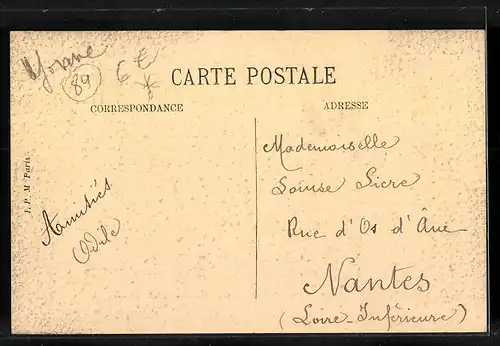 Yonne
89
6 €
CARTE POSTALE
CORRESPONDANCE
ADRESSE
Mademoiselle
Louise Licre
Rue d'Os d'Âne
Nantes
(Loire-Inférieure)
Amitiés
Odile
J. P. M Paris